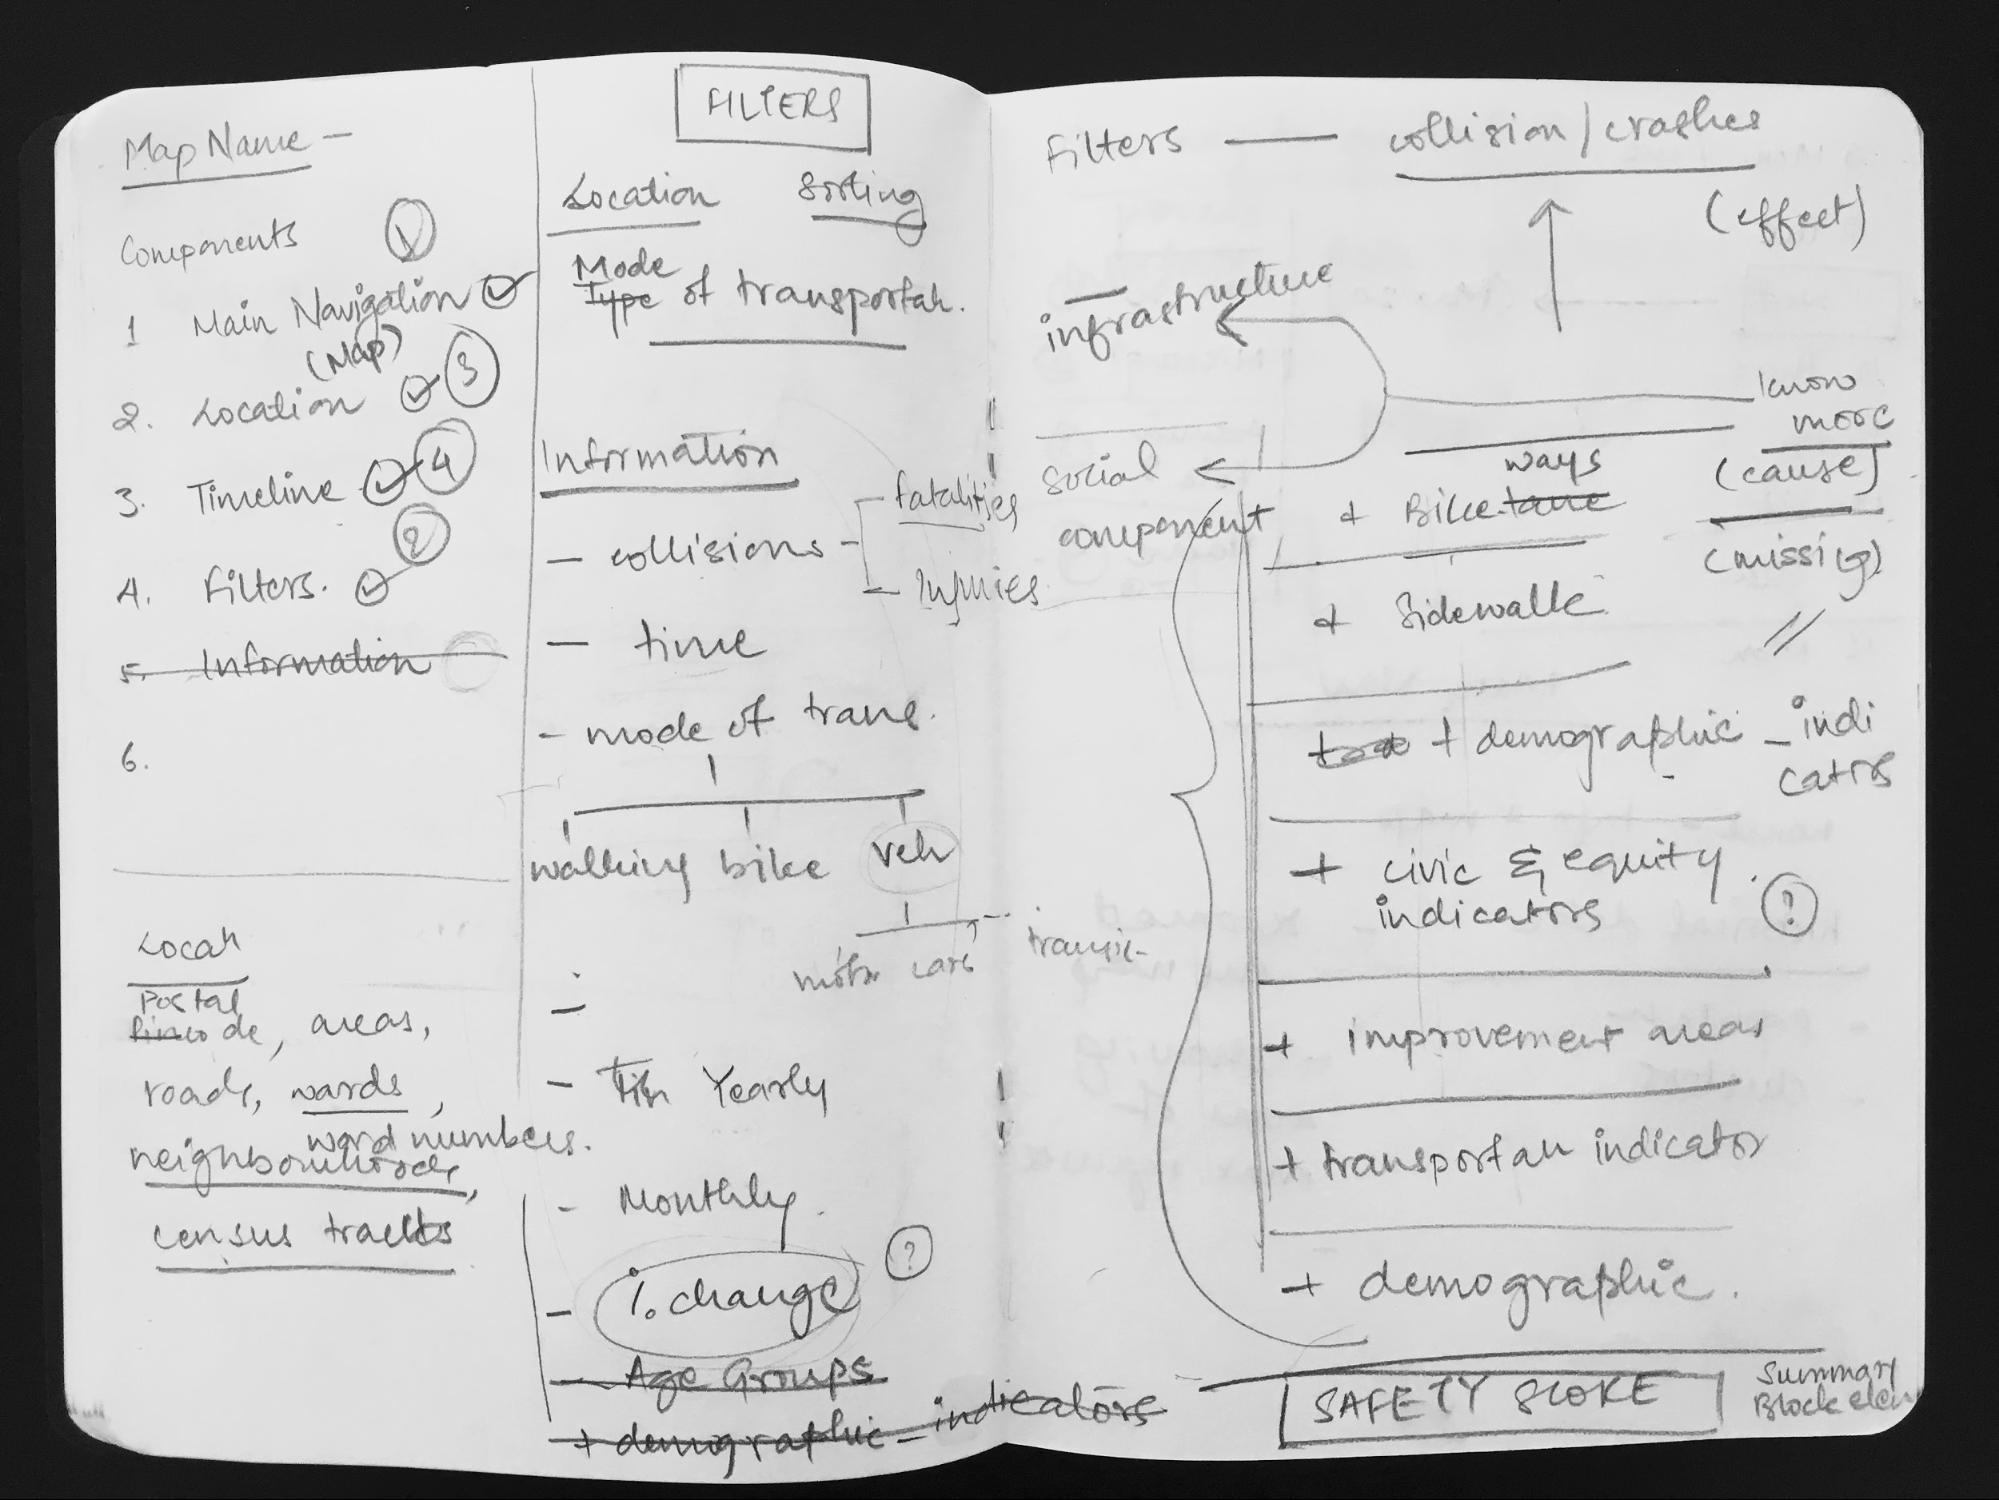 Map Name —
Components 1
1 Main Navigation
(Map)
2. Location 3
3. Timeline 4
4. Filters. 2
5. Information
6.
Postal
areas,
roads, wards,
ward numbers.
neighbourhoods,
census tracts
FILTERS
Location Sorting
Mode
Type of transportatn.
Information
— collisions - fatalities
- Injuries
— time
- mode of trans.
walking bike veh
motor cars transit
—
- Yearly
- Monthly.
- % change ?
- Age Groups
+ demographic - indicators
Filters — collision / crashes
(effect)
infrastructure
know
more
(cause)
(missing)
social
component
ways
+ Bike lane
+ Sidewalk
+ demographic - indi
cators
+ civic & equity.
indicators ?
+ improvement areas
+ transportatn indicator
+ demographic.
SAFETY SCORE
Summary
Block elem